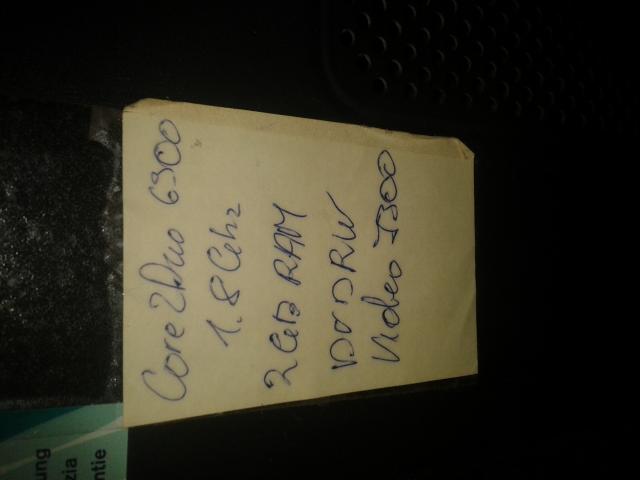 Core2Duo 6300
1.8 Ghz
2GB RAM
DVDRW
Video 7300
ung
zia
ntie